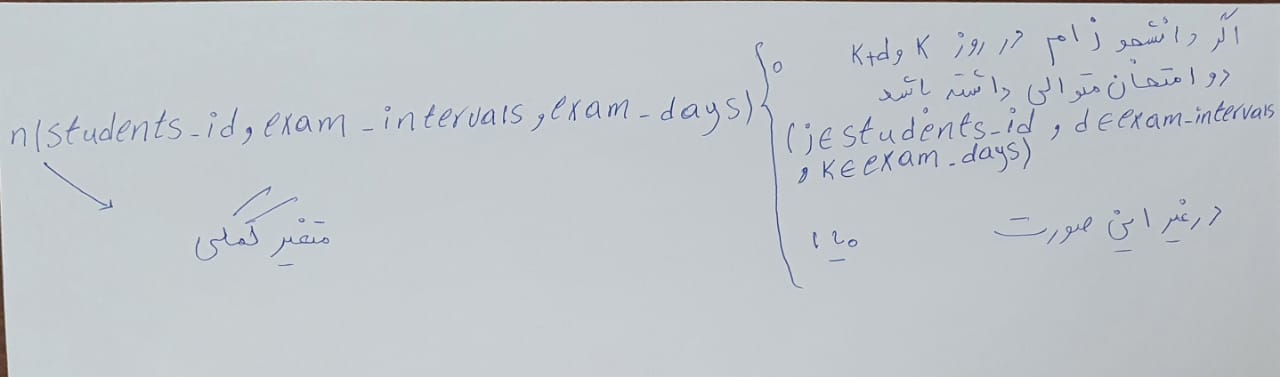 n(students_id, exam_intervals, exam_days) { 0 اگر دانشجو jام در روز K و K+d
دو امتحان متوالی داشته باشد
(j∈students_id, d∈exam_intervals
, K∈exam_days)
1 یا 0 در غیر این صورت
متغیر کمکی